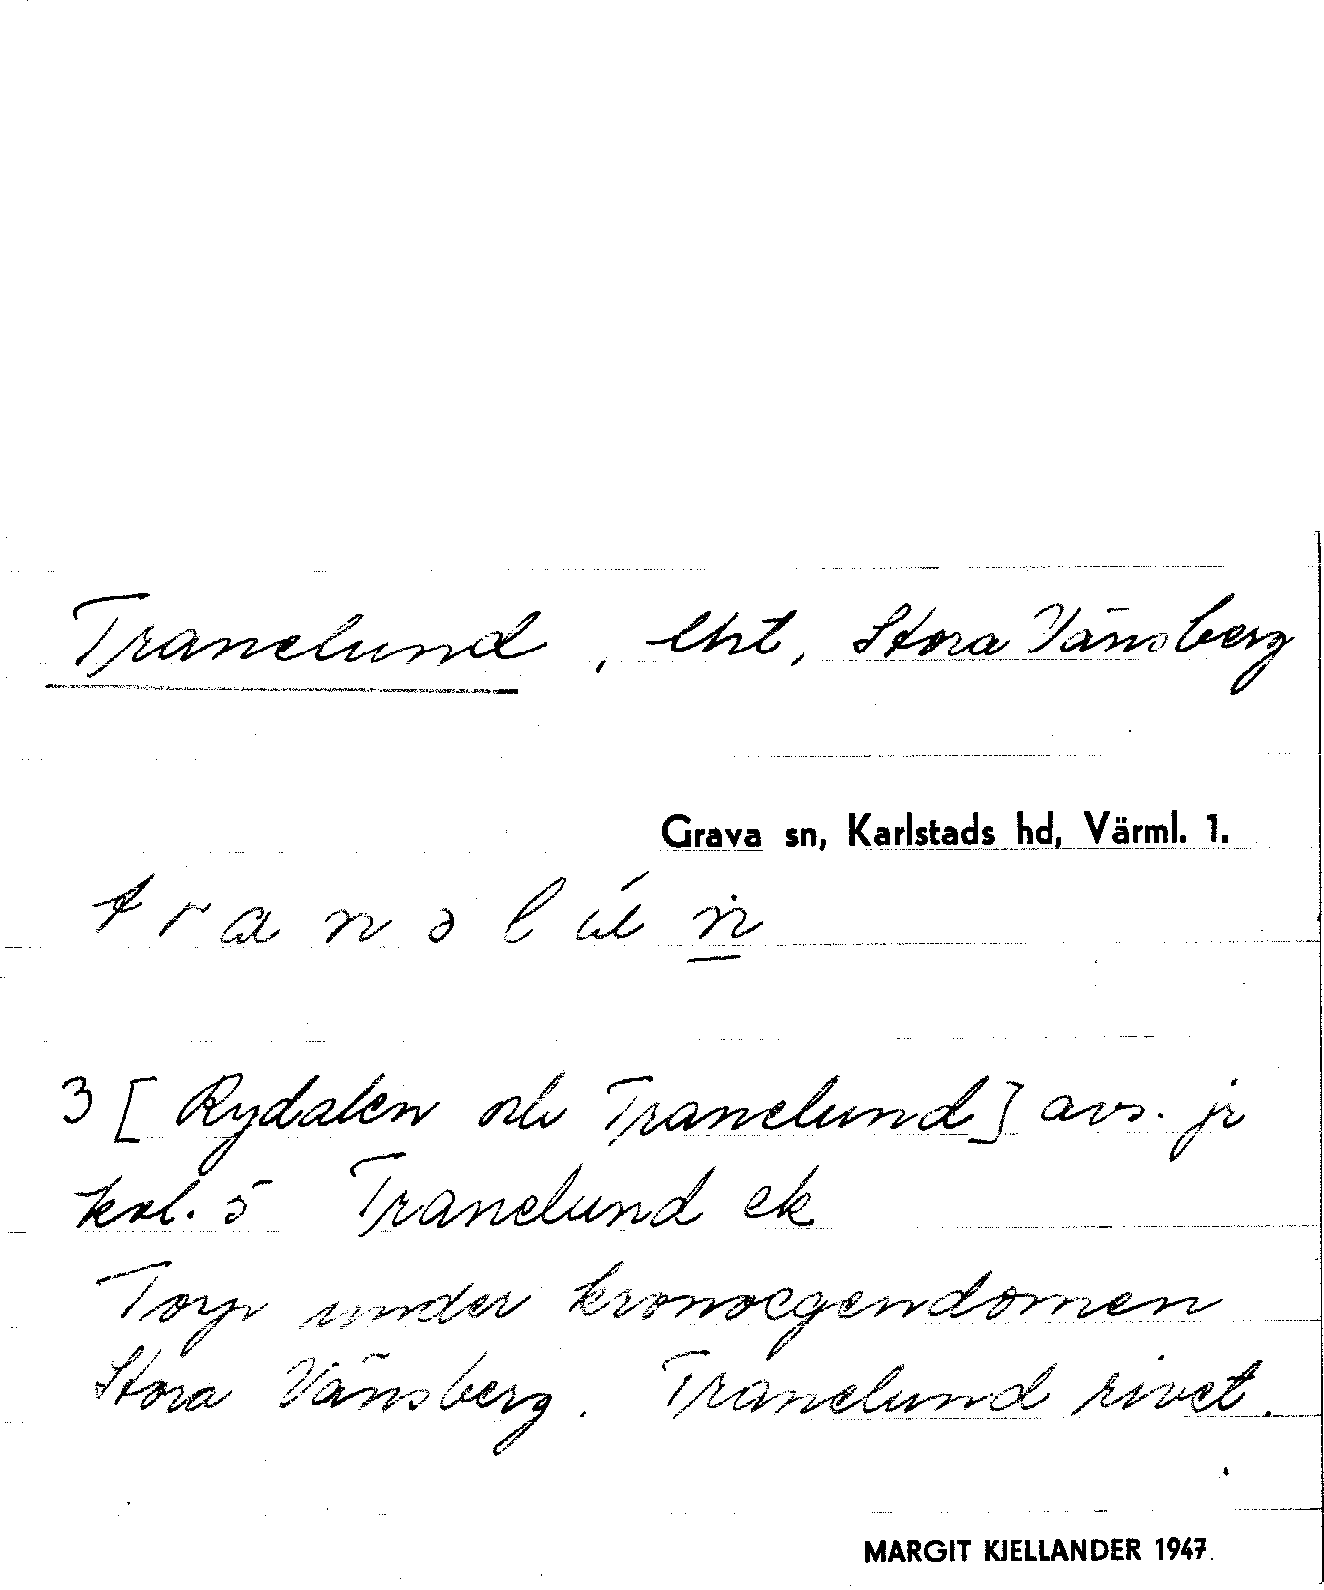 Tranelund, lht, Stora Vänsberg
Grava sn, Karlstads hd, Värml. 1.
tranəlúṅ
3 [Rydalen och Tranelund] avs. jr
kol. 5 Tranelund ek
Torp under kronoegendomen
Stora Vänsberg. Tranelund rivet.
MARGIT KJELLANDER 1947.